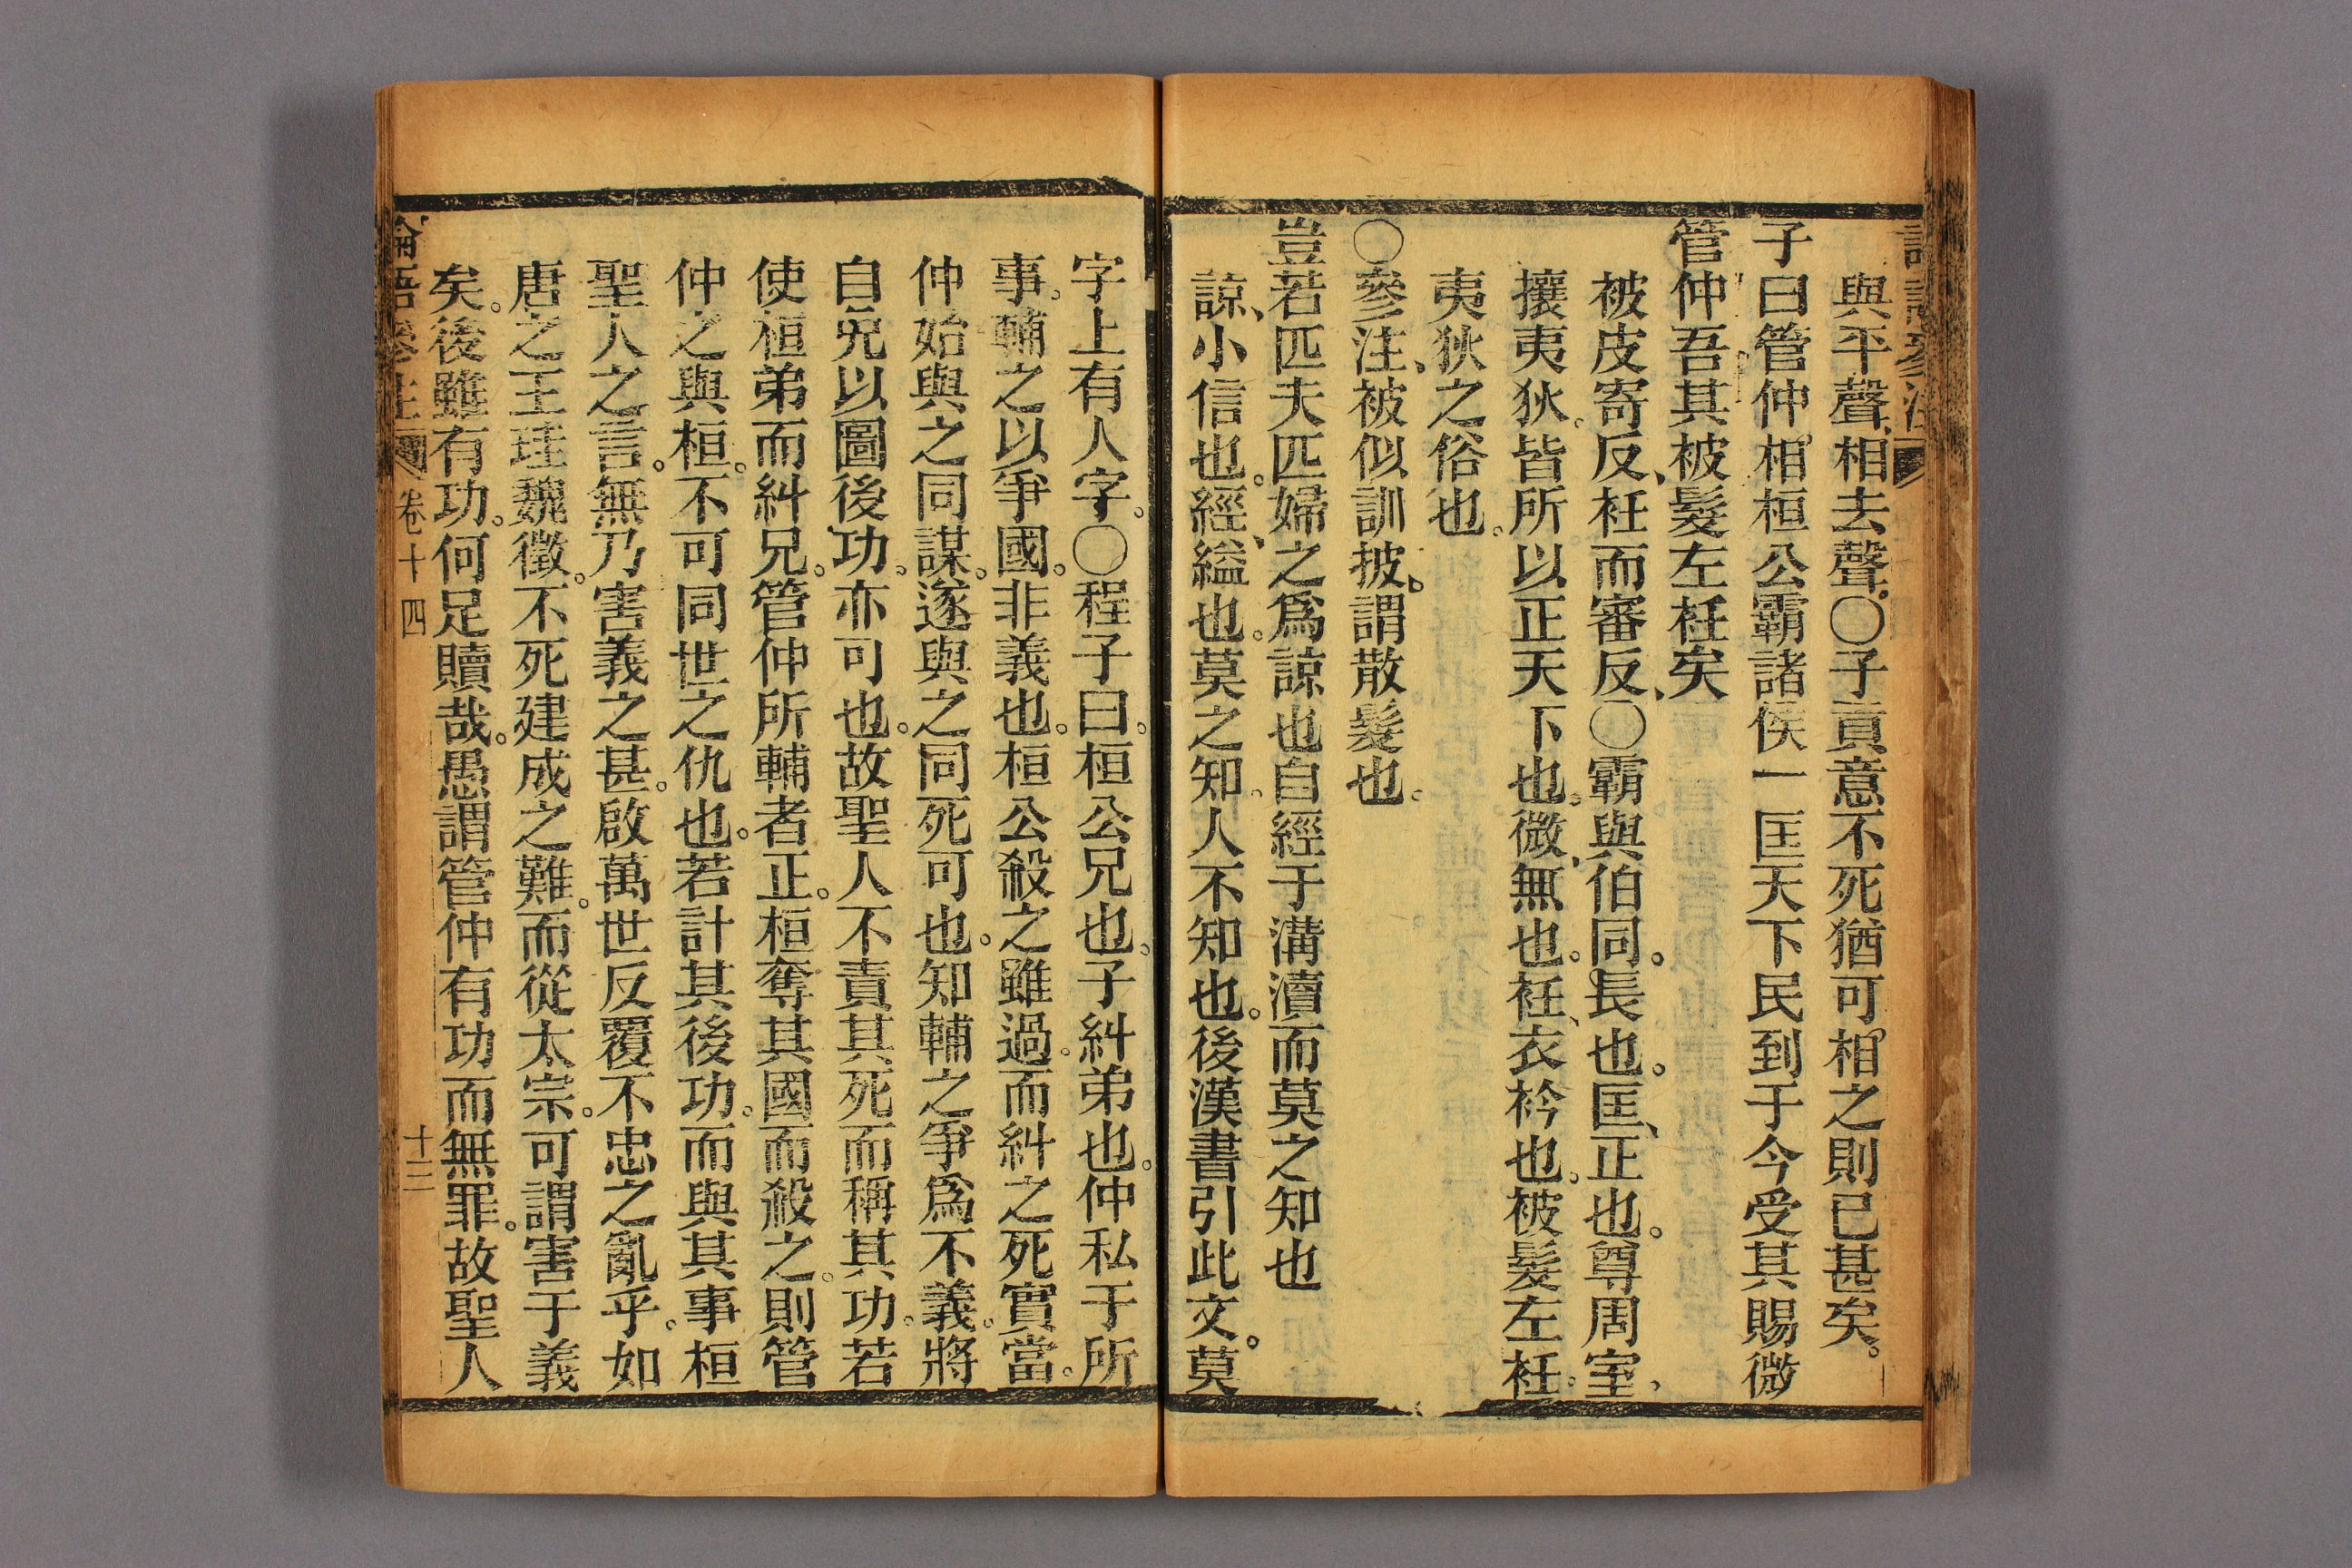 與平聲、相去聲。○子貢意不死猶可相之則已甚矣。
子曰管仲相桓公霸諸侯一匡天下民到于今受其賜微
管仲吾其被髮左衽矣
被皮寄反、衽而審反、○霸與伯同。長也。匡、正也。尊周室、
攘夷狄。皆所以正天下也。微、無也。衽、衣衿也。被髮左衽。
夷狄之俗也。
○參注、被似訓披。謂散髮也。
豈若匹夫匹婦之爲諒也自經于溝瀆而莫之知也
諒、小信也。經、縊也。莫之知。人不知也。後漢書引此文。莫
字上有人字。○程子曰。桓公兄也。子糾弟也。仲私于所
事。輔之以爭國。非義也。桓公殺之雖過。而糾之死實當。
仲始與之同謀。遂與之同死可也。知輔之爭爲不義。將
自免以圖後功。亦可也。故聖人不責其死而稱其功。若
使桓弟而糾兄。管仲所輔者正。桓奪其國而殺之。則管
仲之與桓。不可同世之仇也。若計其後功。而與其事桓
聖人之言。無乃害義之甚。啟萬世反覆不忠之亂乎。如
唐之王珪魏徵。不死建成之難。而從太宗。可謂害于義
矣。後雖有功。何足贖哉。愚謂管仲有功而無罪。故聖人
論語參注 卷十四 十三